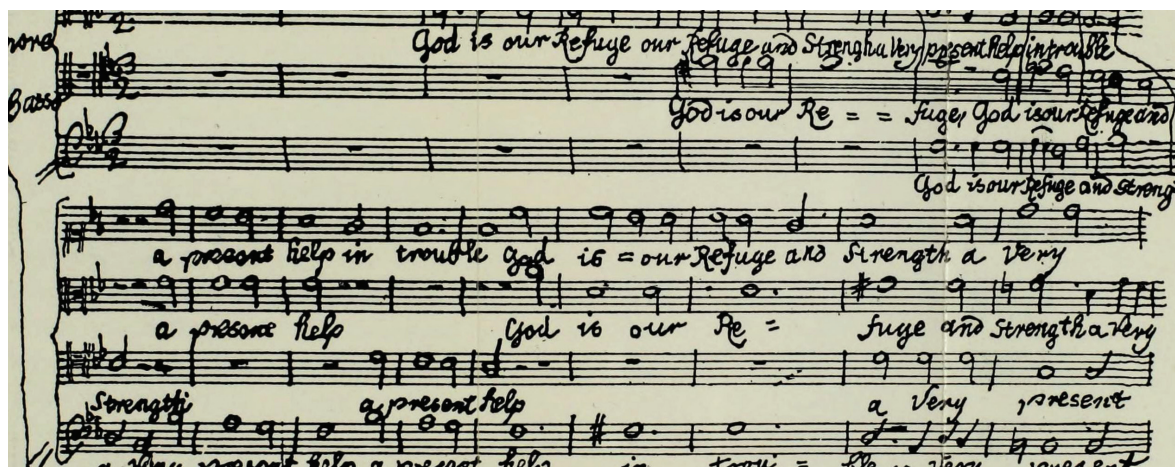 God is our Refuge our Refuge and Strength a Very present help in trouble
Basso
God is our Re = = fuge, God is our Refuge and
God is our Refuge and Streng
a present help in trouble God is = our Refuge and Strength a Very
a present help God is our Re = fuge and Strength a Very
Strength a present help a Very present
a very present help a present help in trou = ble a Very present